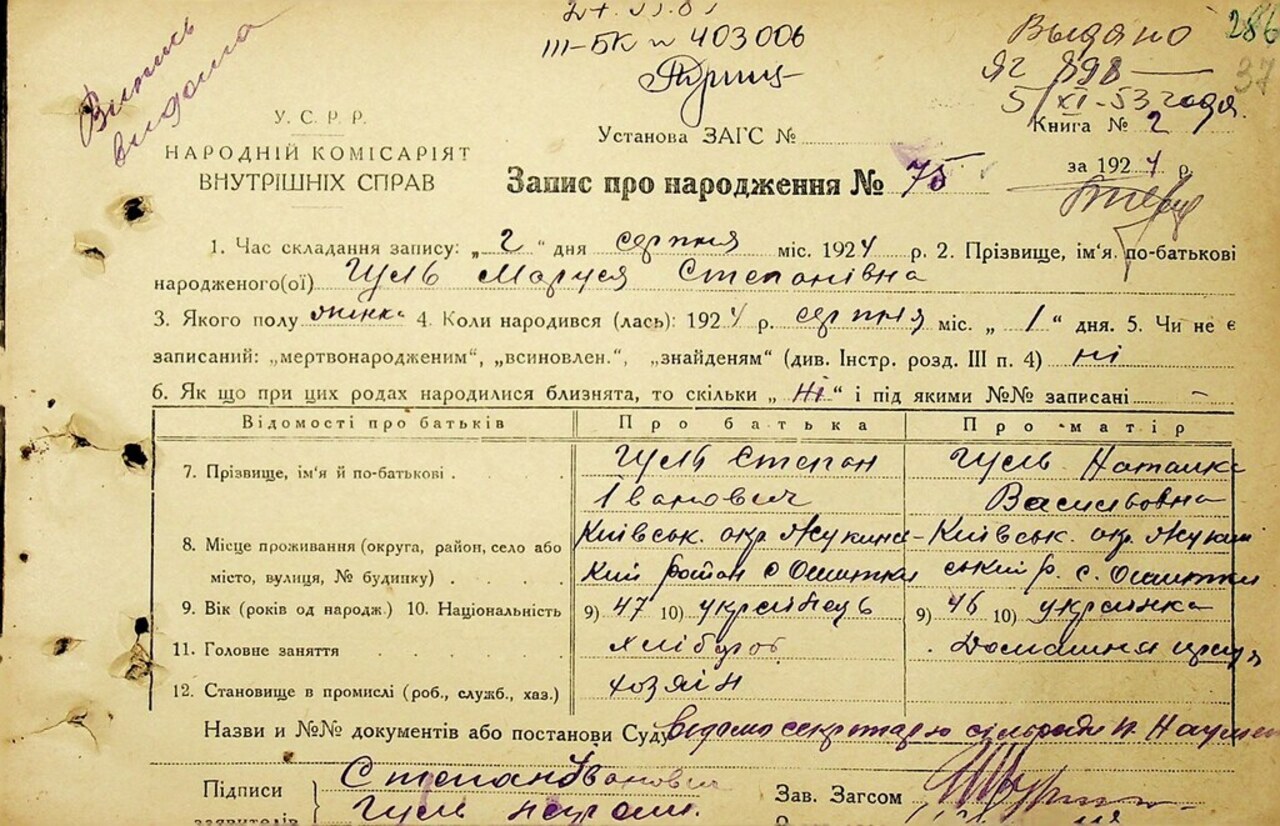 286
37
Випись
видана
III-БК № 403006
Выдано
ЯГ 898 —
5/XI-53 года.
У. С. Р. Р.
НАРОДНІЙ КОМІСАРІЯТ
ВНУТРІШНІХ СПРАВ
Установа ЗАГС №
Книга № 2
за 1924 р.
Запис про народження № 75
1. Час складання запису: „2“ дня серпня міс. 1924 р. 2. Прізвище, ім'я, по-батькові
народженого(ої) Гуль Маруся Степанівна
3. Якого полу жінка 4. Коли народився (лась): 1924 р. серпня міс. „1“ дня. 5. Чи не є
записаний: „мертвонародженим“, „всиновлен.“, „знайденям“ (див. Інстр. розд. III п. 4) ні
6. Як що при цих родах народилися близнята, то скільки „ні“ і під якими №№ записані —
Відомості про батьків Про батька Про матір
7. Прізвище, ім'я й по-батькові . Гуль Степан Гуль Наталка
Іванович Васильовна
8. Місце проживання (округа, район, село або Київськ. окр. Жукинс- Київськ. окр. Жукин
місто, вулиця, № будинку) . . . . кий район с Ошитки ський р. с. Ошитки
9. Вік (років од народж.) 10. Національність 9) 47 10) українець 9) 46 10) українка
11. Головне заняття . . . . . хлібороб Домашня праця
12. Становище в промислі (роб., служб., хаз.) хозяїн
Назви и №№ документів або постанови Суду відомо секретарю сільради
Підписи Степан Іванович Зав. Загсом
заявителів Гуль